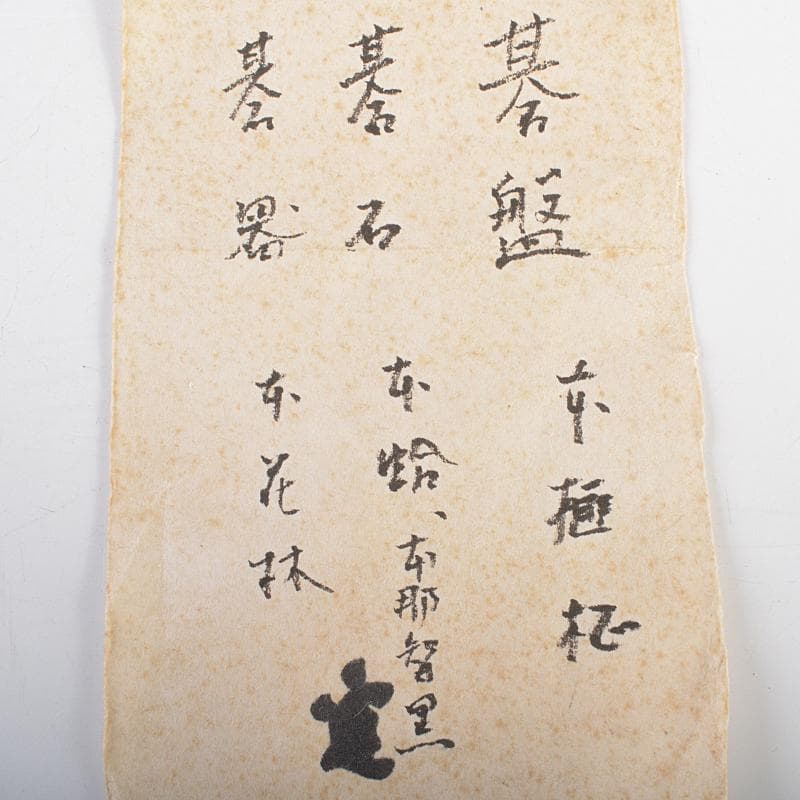 碁盤 本榧柾
碁石 本蛤、本那智黒
碁器 本花林